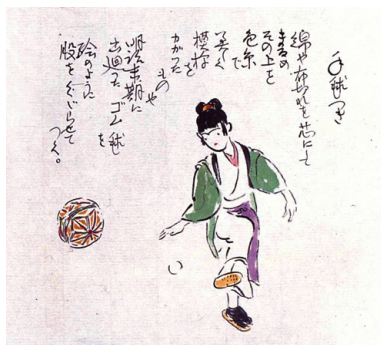 手毬つき
綿や布切れを芯にして
まるめ
その上を
色糸で
美しく
模様を
かがった
ものや
明治末期に
出廻ったゴム毬を
絵のように
股をくぐらせて
つく。